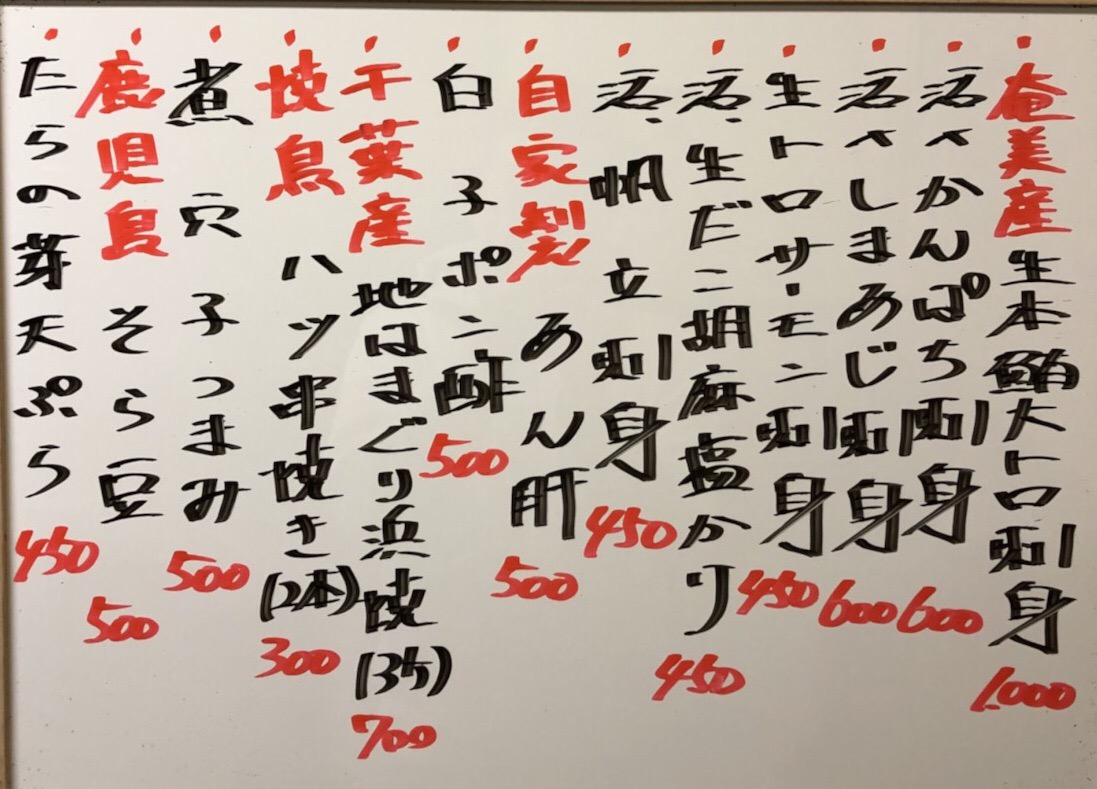 奄美産生本鮪大トロ刺身 1,000
活〆かんぱち刺身 600
活〆しまあじ刺身 600
生トロサーモン刺身 450
活〆生ダコ胡麻塩かり 450
活〆帆立刺身 450
自家製あん肝 500
白子ポン酢 500
千葉産地はまぐり浜焼(3ケ) 700
焼鳥ハツ串焼き(2本) 300
煮穴子つまみ 500
鹿児島そら豆 500
たらの芽天ぷら 450